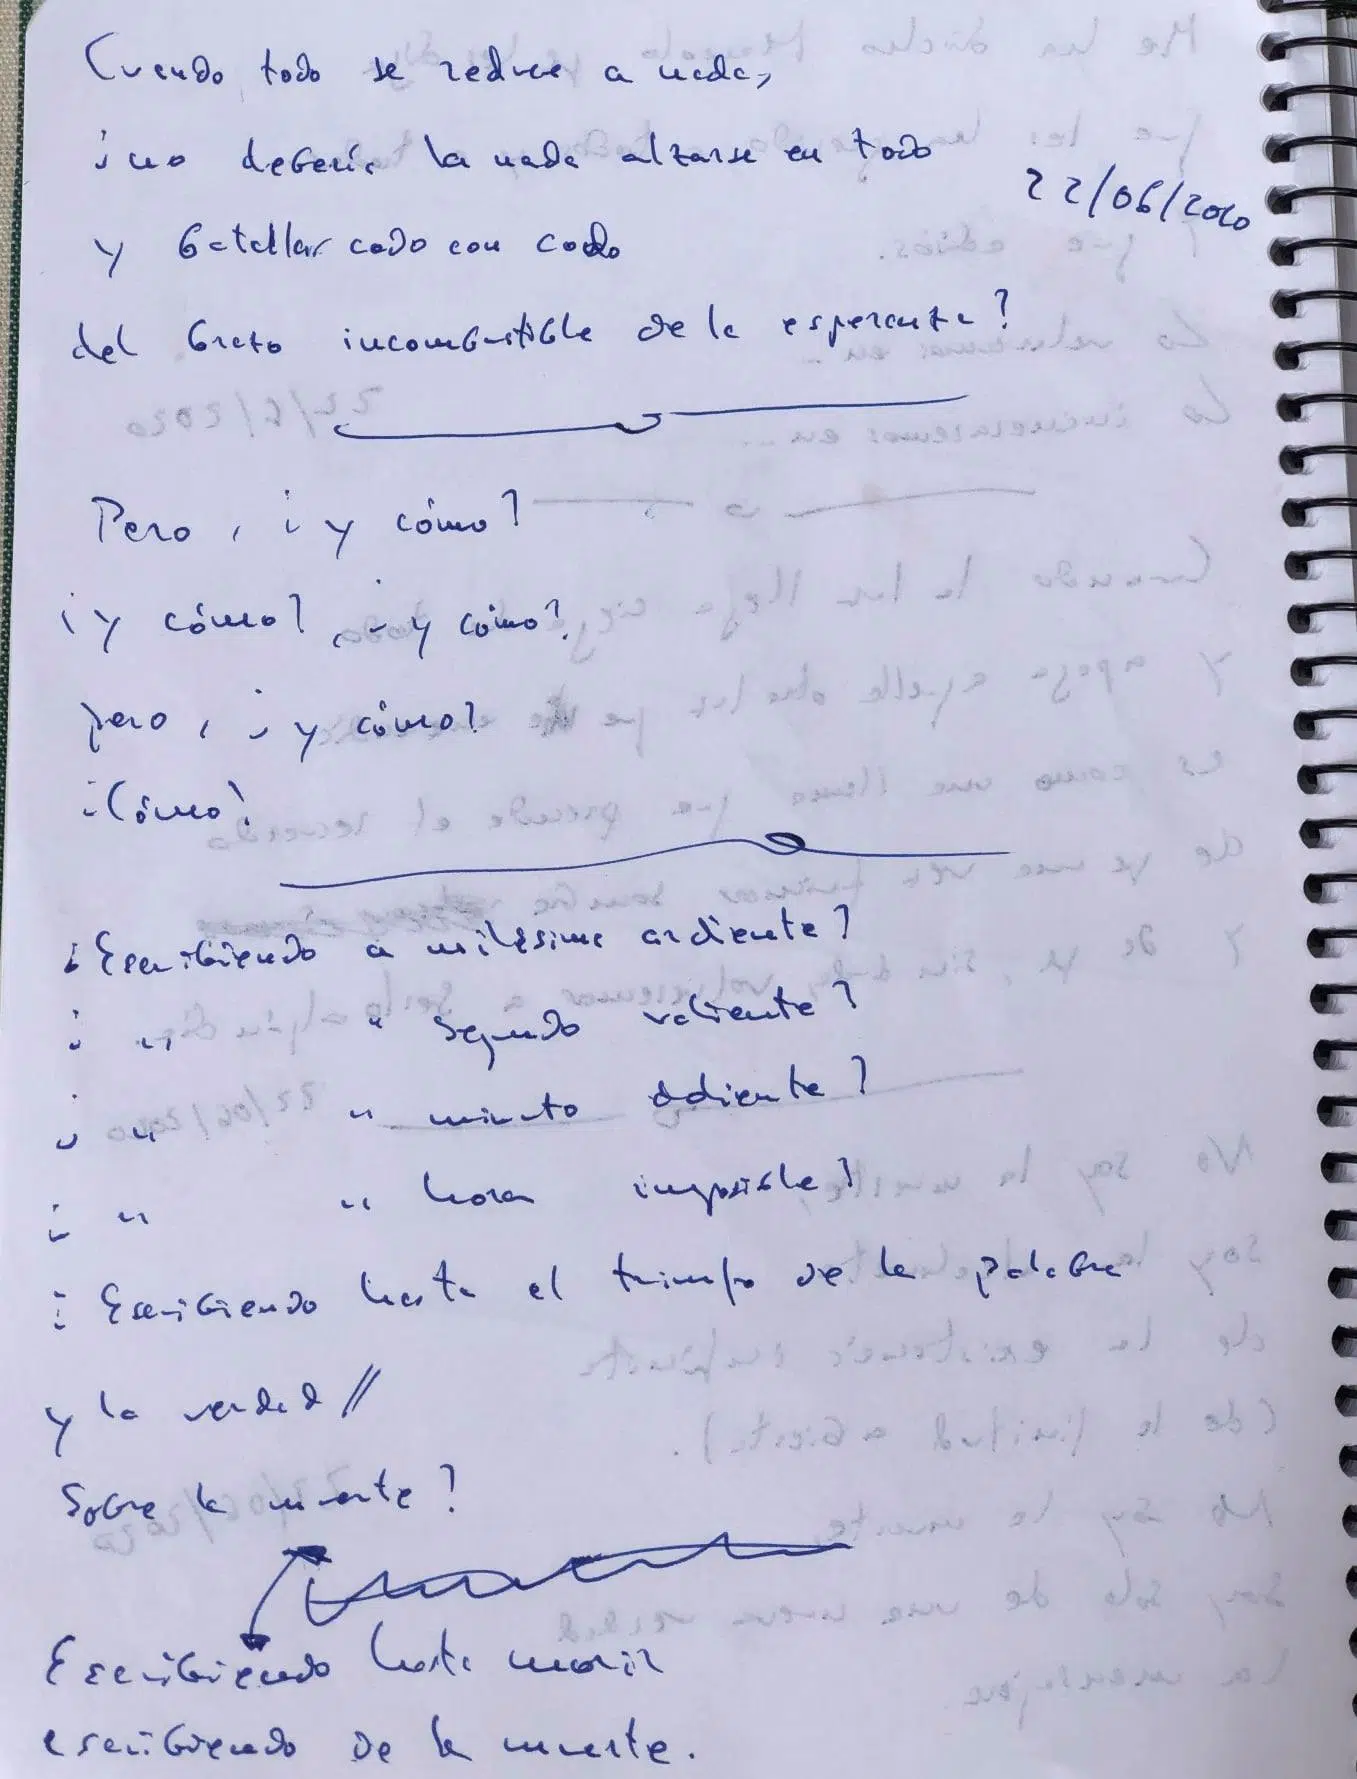 Cuando todo se reduce a nada,
¿no debería la nada alzarse en todo
22/06/2020
y batallar codo con codo
del brazo incombustible de la esperanza?
Pero, ¿y cómo?
¿y cómo?, ¿y cómo?
pero, ¿y cómo?
¿Cómo?
¿Escribiendo a milésima ardiente?
¿ " " segundo valiente?
¿ " " minuto
¿ " " hora imposible?
¿Escribiendo hasta el triunfo de la palabra
y la verdad //
sobre la muerte?
Escribiendo hasta morir
escribiendo de la muerte.